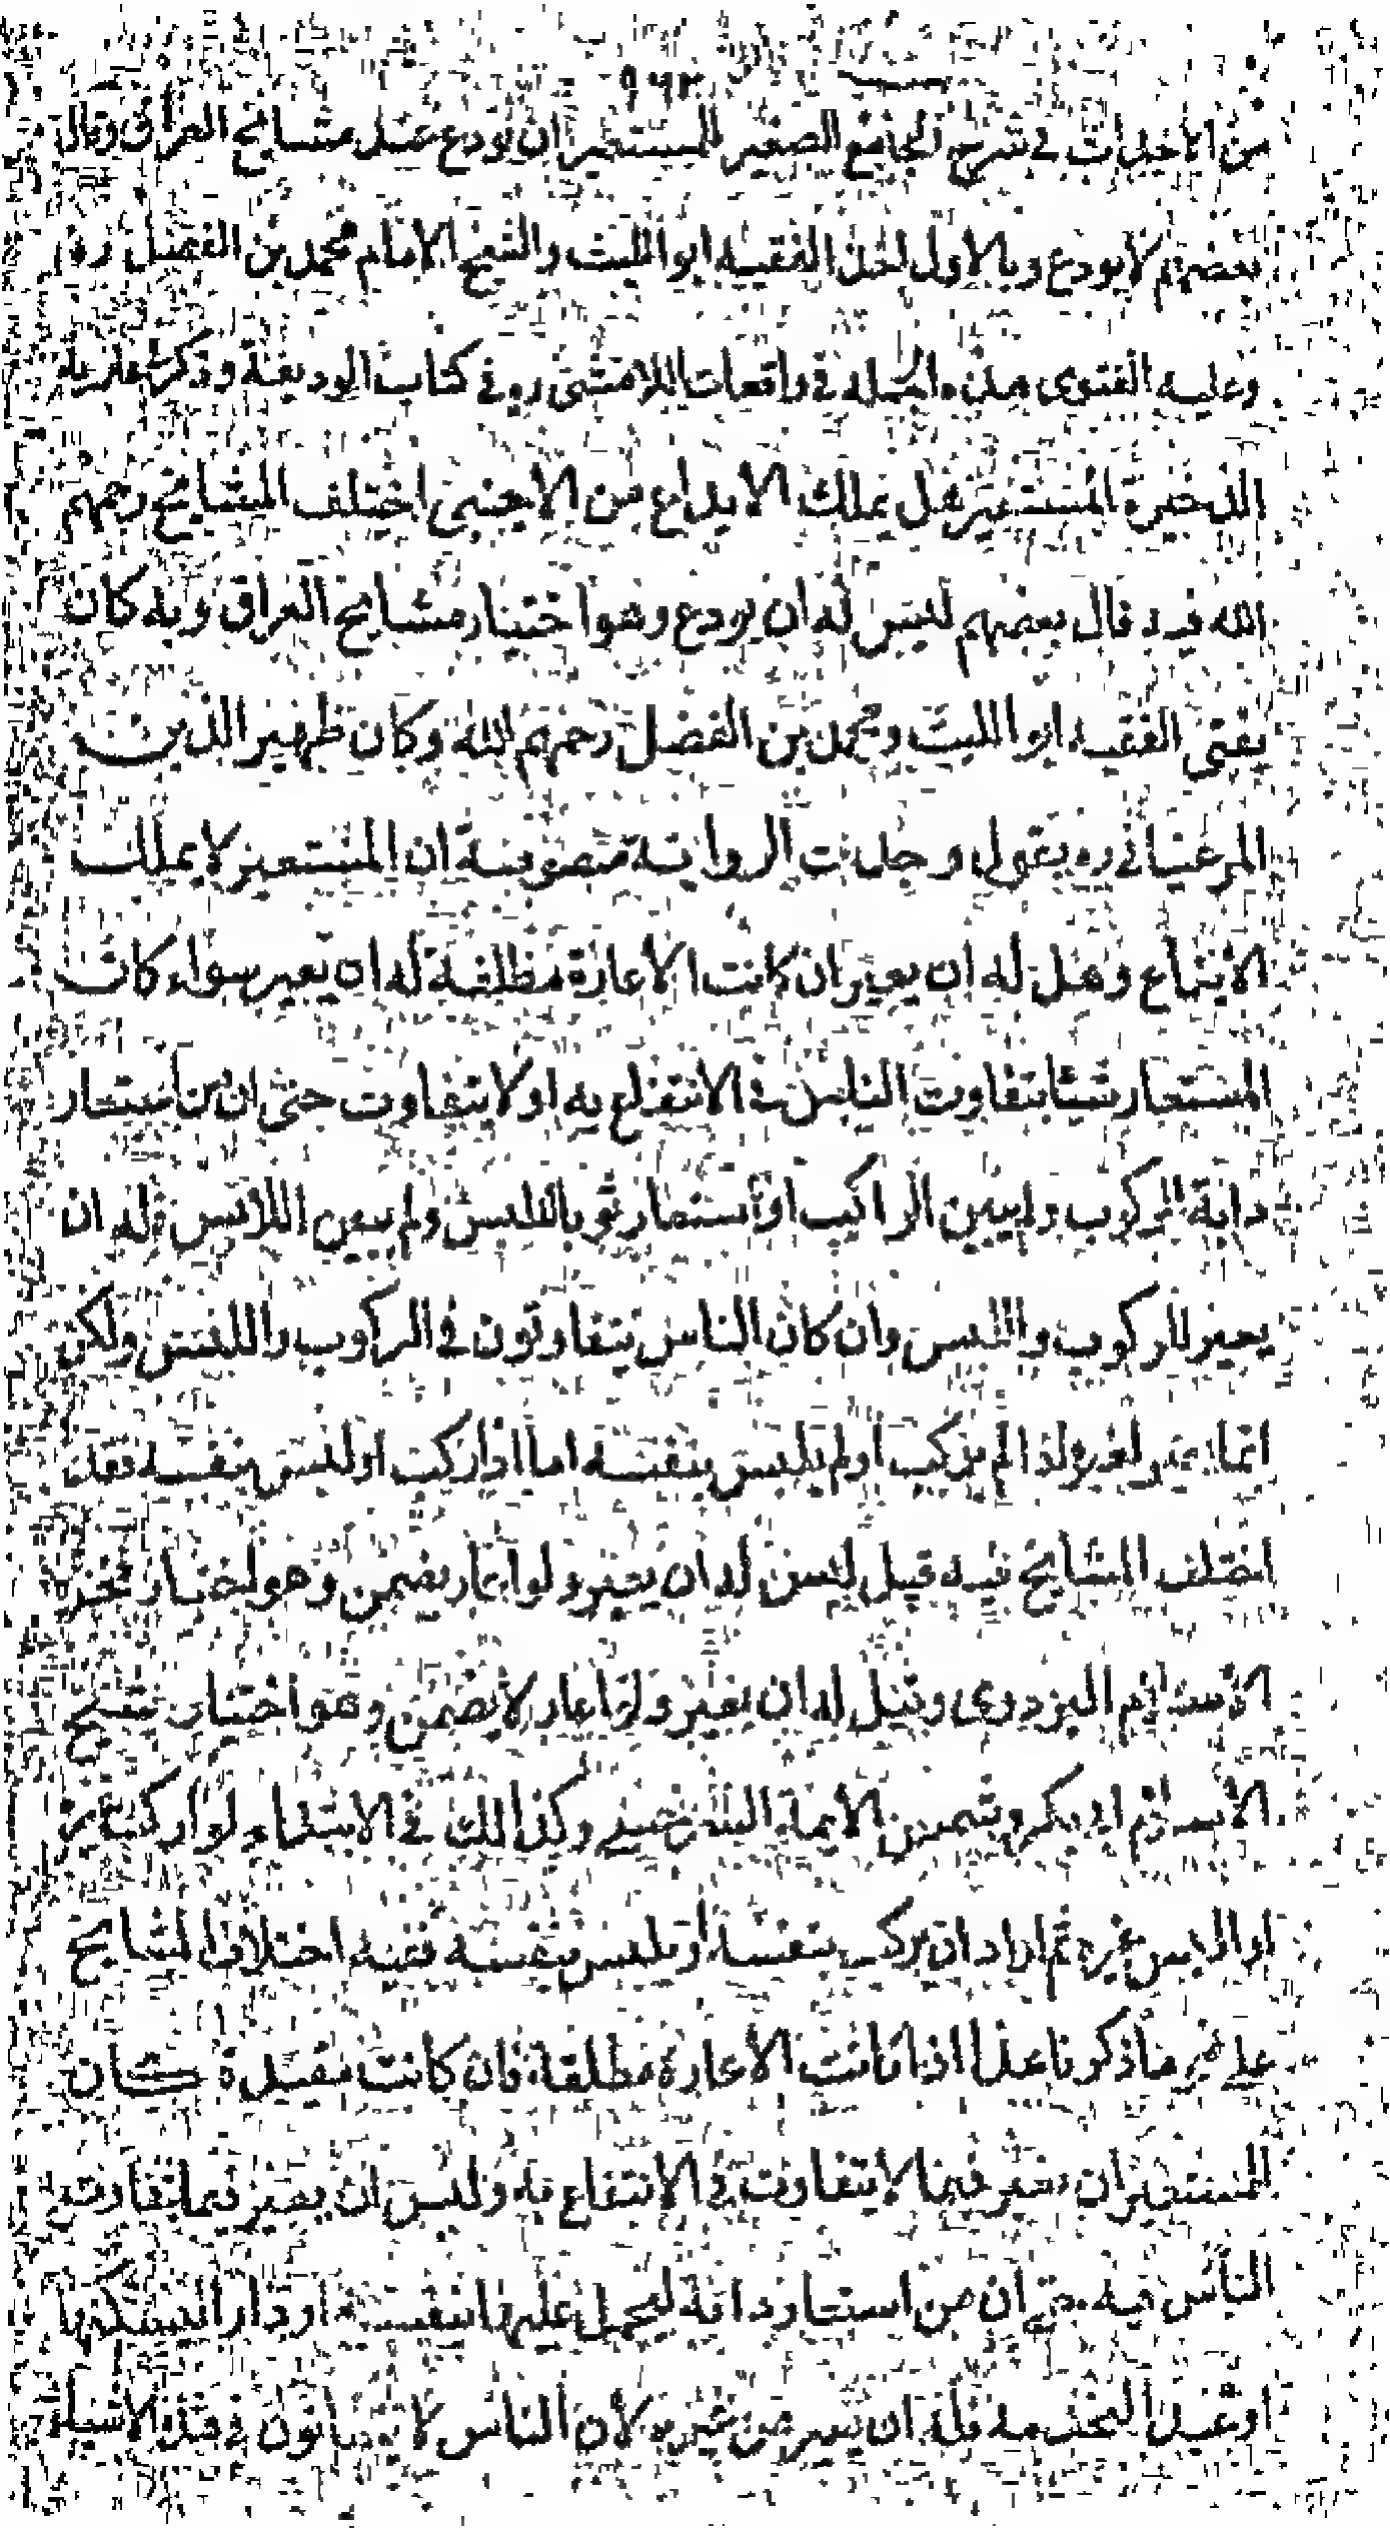 من الاخيرات في شرح الجامع الصغير المستعير ان يودع عند مشايخ العراق وقال
بعضهم لا يودع وبالاول اخذ الفقيه ابو الليث والشيخ الامام محمد بن الفضل ره
وعليه الفتوى هذه في واقعات اللامشي ره في كتاب الوديعة وذكر
الذخيرة المستعير هل يملك الايداع من الاجنبي اختلف المشايخ رحمهم
الله فيه قال بعضهم ليس له ان يودع وهو اختيار مشايخ العراق وبه كان
يفتي الفقيه ابو الليث ومحمد بن الفضل رحمهم الله وكان ظهير الدين
المرغيناني ره يقول وجدت الرواية منصوصة ان المستعير لا يملك
الايداع وهل له ان يعير ان كانت الاعارة مطلقة له ان يعير سواء كان
المستعار شيئا يتفاوت الناس في الانتفاع به او لا يتفاوت حتى ان من استعار
دابة للركوب ولم يبين الراكب او استعار ثوبا للبس ولم يبين اللابس فله ان
يعير للركوب واللبس وان كان الناس يتفاوتون في الركوب واللبس ولكن
انما يعير لغيره اذا لم يركب او لم يلبس بنفسه اما اذا ركب او لبس بنفسه فقد
اختلف المشايخ فيه قيل ليس له ان يعير ولو اعار يضمن وهو اختيار فخر
الاسلام البزدوي وقيل له ان يعير ولو اعار لا يضمن وهو اختيار شيخ
الاسلام ابي بكر وشمس الائمة السرخسي وكذلك في الابتداء لو اركب غيره
او البس غيره ثم اراد ان يركب بنفسه او يلبس بنفسه ففيه اختلاف المشايخ
على نحو ما ذكرنا هذا اذا كانت الاعارة مطلقة فان كانت مقيدة كان
للمستعير ان يعير فيما لا يتفاوت في الانتفاع به وليس ان يعير فيما يتفاوت
الناس فيه حتى ان من استعار دابة ليحمل عليها بنفسه او دارا ليسكنها
او عبدا ليخدمه فله ان يعير من غيره لان الناس لا يتفاوتون في هذه الاشياء